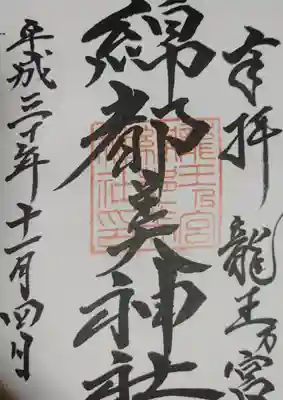 奉拝 龍王乃宮
綿都美神社
平成三十年十一月四日